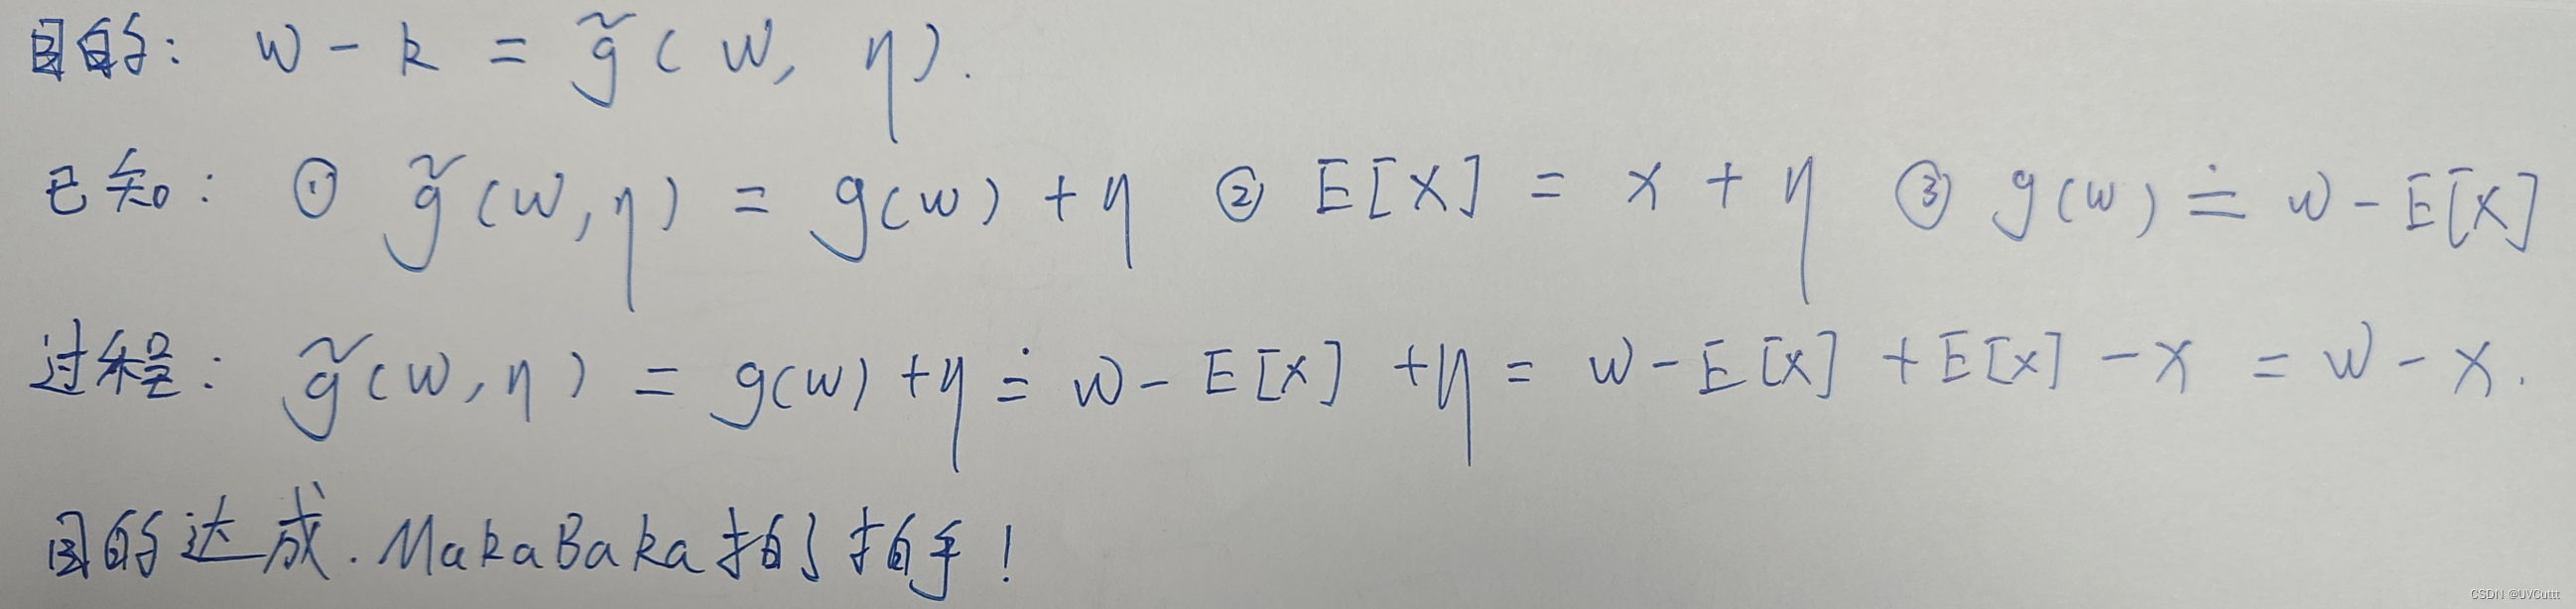 目的: w - k = g̃(w, η).
已知: ① g̃(w,η) = g(w) + η ② E[X] = x + η ③ g(w) ≐ w - E[X]
过程: g̃(w,η) = g(w) + η ≐ w - E[X] + η = w - E[X] + E[X] - x = w - x.
目的达成. MakaBaka 拍了拍手!
CSDN @UVCuttt